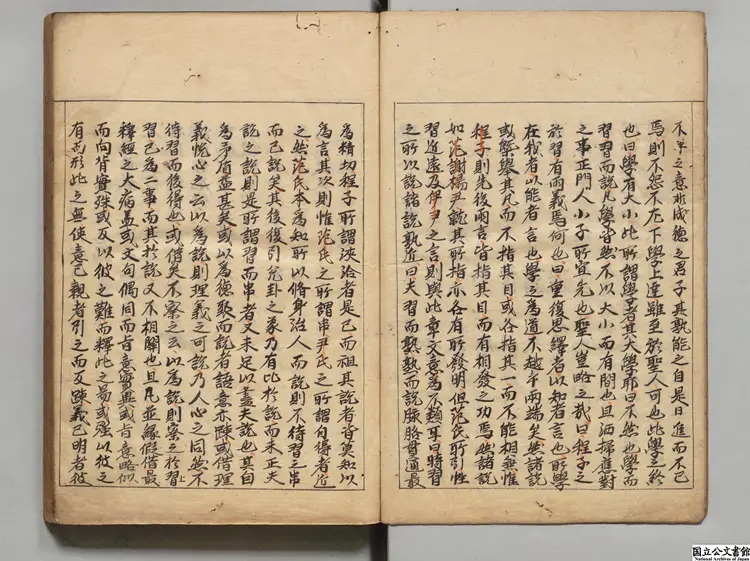 不平之意形成德之君子其孰能之自是日進而不已
焉則不怨不尤下學上達雖至於聖人可也此學之終
也曰學有大小此所謂學者其大學耶曰不然也學而
習習而說凡學皆然不以大小而有間也且洒掃應對
之事正門人小子所宜先也聖人豈略之哉曰程子之
於習有兩義焉何也曰重復思繹者以知者言也所學
在我者以能者言也學之為道不越乎兩端矣然諸說
或繁舉其凡而不指其目或各指其一而不能相兼惟
程子則先後兩言皆指其目而有相發之功焉然諸說
如范謝楊尹說其所指亦各有所發明但范氏所引性
習遠近及伊尹之言則與此章文意為不類耳曰時習
之所以說諸說孰近曰夫習而熟熟而說脉絡貫通最
為精切程子所謂浹洽者是已而祖其說者皆莫知以
為言其次則惟范氏之所謂串尹氏之所謂自得者近
之然范氏本為知所以脩身治人而說則不待習之串
而已說矣其後復引兌卦之象乃有比於說而未正夫
說之說則是所謂習而串者又未足以盡夫說也其自
為矛盾益甚矣或以為德聚而說者語意亦踈或借理
義悅心之云以為說則理義之可說乃人心之同然不
待習而後得也或借矣不察之云以為說則察之於習
習已為二事而其於說又不相關也且凡並緣假借最
釋經之大病盖或文句偶同而旨意實異或旨意略似
而向背實殊或反以彼之難而釋此之易或强以彼之
有而形此之無使意已親者引之而反踈義已明者彼
国立公文書館
National Archives of Japan